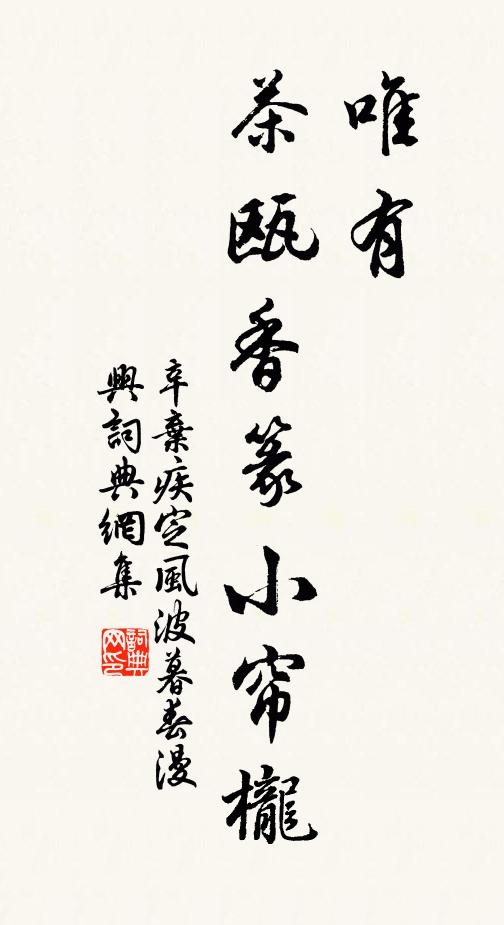 唯有
茶甌香篆小帘櫳
辛棄疾定風波暮春漫
興詞典網集
詞典
网印